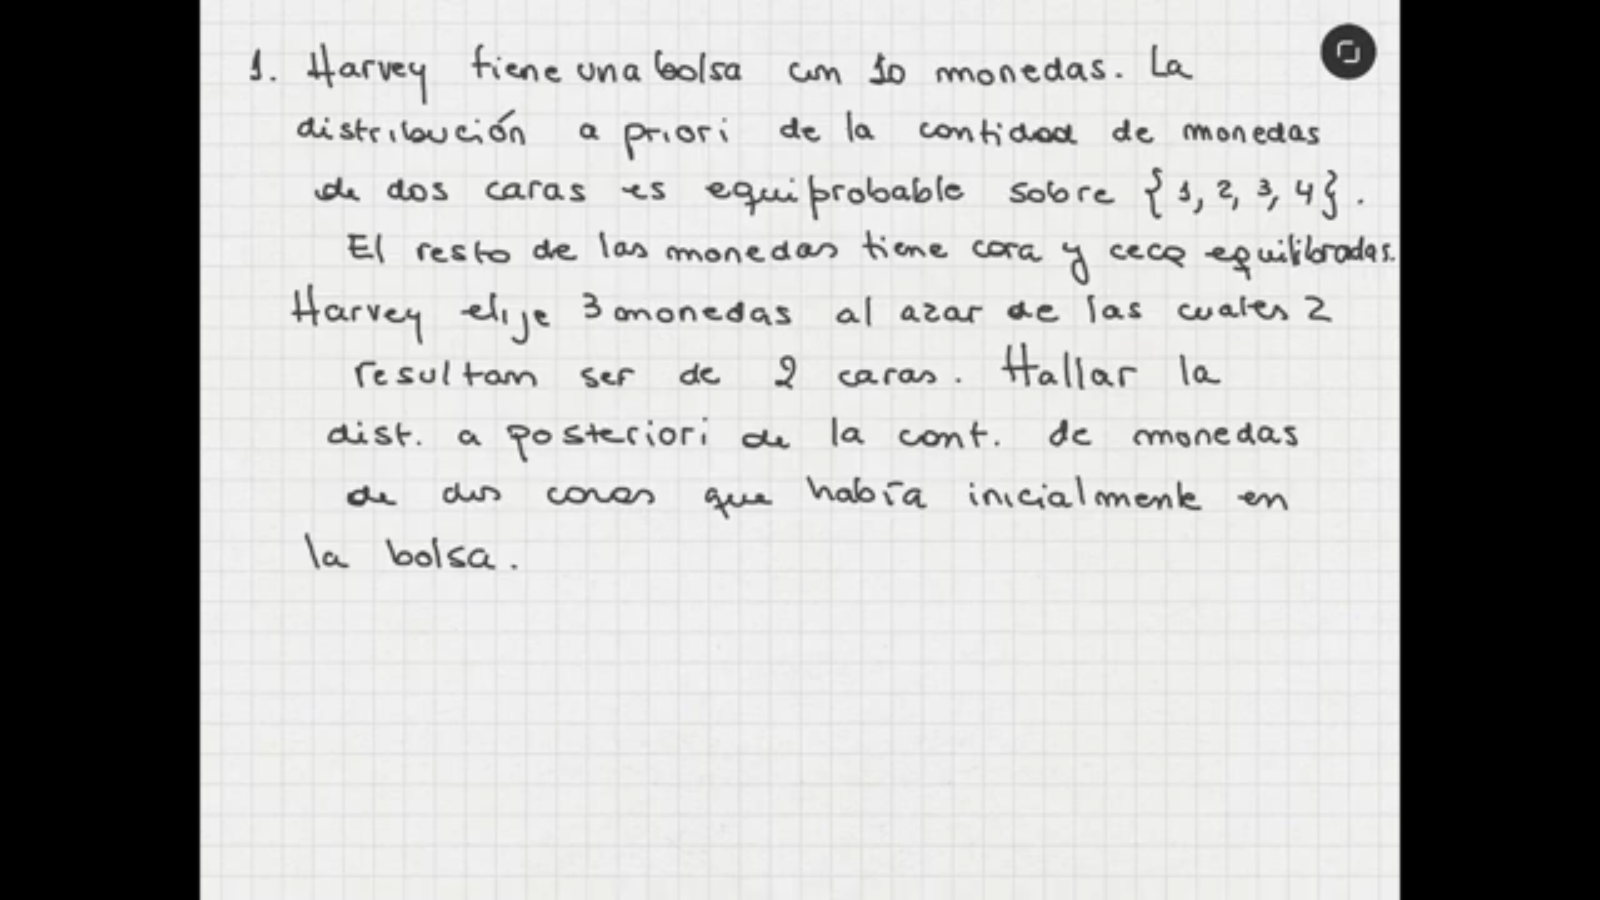 1. Harvey tiene una bolsa con 10 monedas. La
distribución a priori de la cantidad de monedas
de dos caras es equiprobable sobre {1, 2, 3, 4}.
El resto de las monedas tiene cara y ceca equilibradas.
Harvey elije 3 monedas al azar de las cuales 2
resultan ser de 2 caras. Hallar la
dist. a posteriori de la cant. de monedas
de dos caras que había inicialmente en
la bolsa.